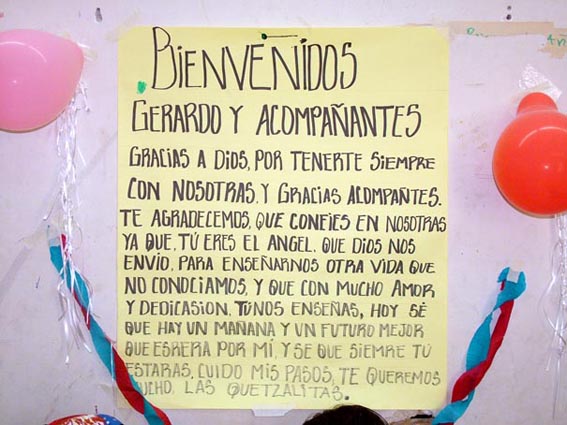 BIENVENIDOS
GERARDO Y ACOMPAÑANTES
GRACIAS A DIOS, POR TENERTE SIEMPRE
CON NOSOTRAS, Y GRACIAS ACOMPANTES.
TE AGRADECEMOS, QUE CONFIES EN NOSOTRAS
YA QUE, TÚ ERES EL ANGEL. QUE DIOS NOS
ENVIO, PARA ENSEÑARNOS OTRA VIDA QUE
NO CONOCIAMOS, Y QUE CON MUCHO AMOR
Y DEDICASION, TÚNOS ENSEÑAS, HOY SÉ
QUE HAY UN MAÑANA Y UN FUTURO MEJOR
QUE ESRERA POR MÍ, Y SE QUE SIEMPRE TÚ
ESTARAS, CUIDO MIS PASOS, TE QUEREMOS
MUCHO, LAS QUETZALITAS.